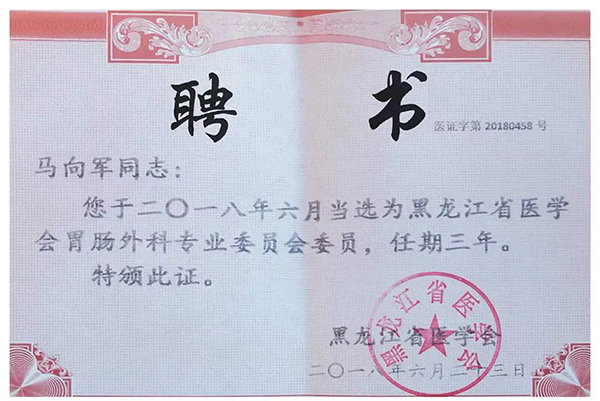 聘书
医证字第 20180458 号
马向军同志：
您于二〇一八年六月当选为黑龙江省医学
会胃肠外科专业委员会委员，任期三年。
特颁此证。
黑龙江省医学会
二〇一八年六月二十三日
黑龙江省医学会